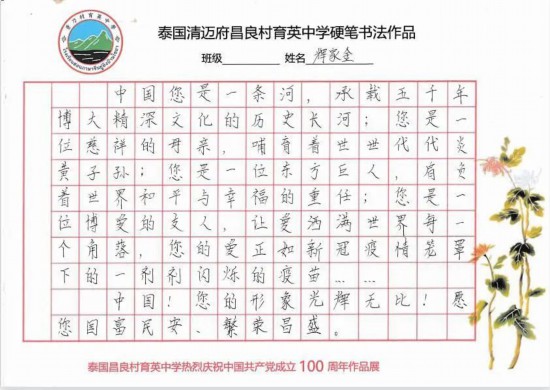 泰国清迈府昌良村育英中学硬笔书法作品
班级 姓名 辉家金
中国您是一条河，承载五千年
博大精深文化的历史长河；您是一
位慈祥的母亲，哺育着世世代代炎
黄子孙；您是一位东方巨人，肩负
着世界和平与幸福的重任；您是一
位博爱的文人，让爱洒满世界每一
个角落，您的爱正如新冠疫情笼罩
下的一剂剂闪烁的疫苗……
中国！您的形象光辉无比！愿
您国富民安、繁荣昌盛。
泰国昌良村育英中学热烈庆祝中国共产党成立100周年作品展